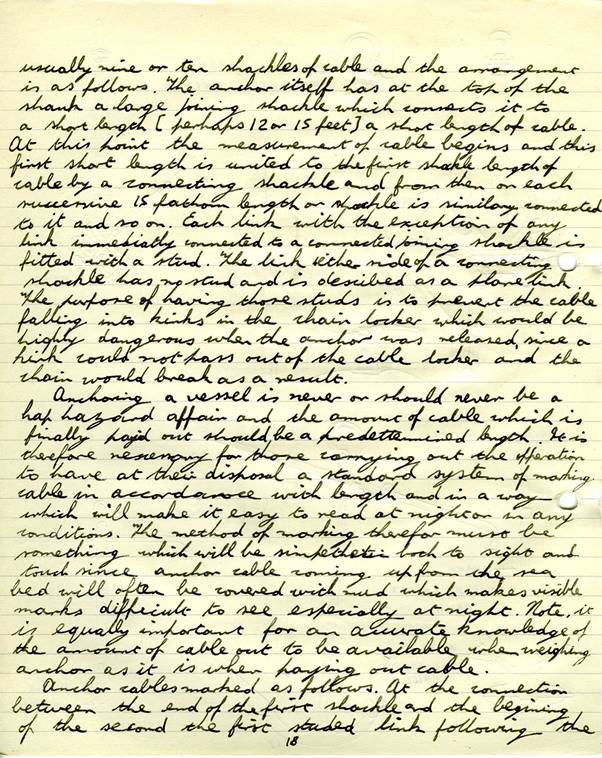 usually nine or ten shackles of cable and the arrangement
is as follows. The anchor itself has at the top of the
shank a large joining shackle which connects it to
a short length [perhaps 12 or 15 feet] a short length of cable.
At this point the measurement of cable begins and this
first short length is united to the first shakle length of
cable by a connecting shackle and from then on each
successive 15 fathom length or shackle is similary connected
to it and so on. Each link with the exception of any
link immediatly connected to a connected joining shackle is
fitted with a stud. The link either side of a connecting
shackle has no stud and is described as a plane link
The purpose of having those studs is to prevent the cable
falling into kinks in the chain locker which would be
highly dangerous when the anchor was released, since a
kink could not pass out of the cable locker and the
chain would break as a result.
Anchoring a vessel is never or should never be a
hap hazard affair and the amount of cable which is
finally paid out should be a predetermised length. It is
therefore necessary for those carrying out the opperation
to have at their disposal a standard system of marking
cable in accordance with length and in a way
which will make it easy to read at night or in any
conditions. The method of marking therefor must be
something which will be both to sight and
touch since anchor cable coming up from the sea
bed will often be covered with mud which makes visible
marks difficult to see especially at night. Note, it
is equally important for an accurate knowledge of
the amount of cable out to be available when weighing
anchor as it is when paying out cable.
Anchor cables marked as follows. At the connection
between the end of the first shackle and the begining
of the second the first studed link following the
18